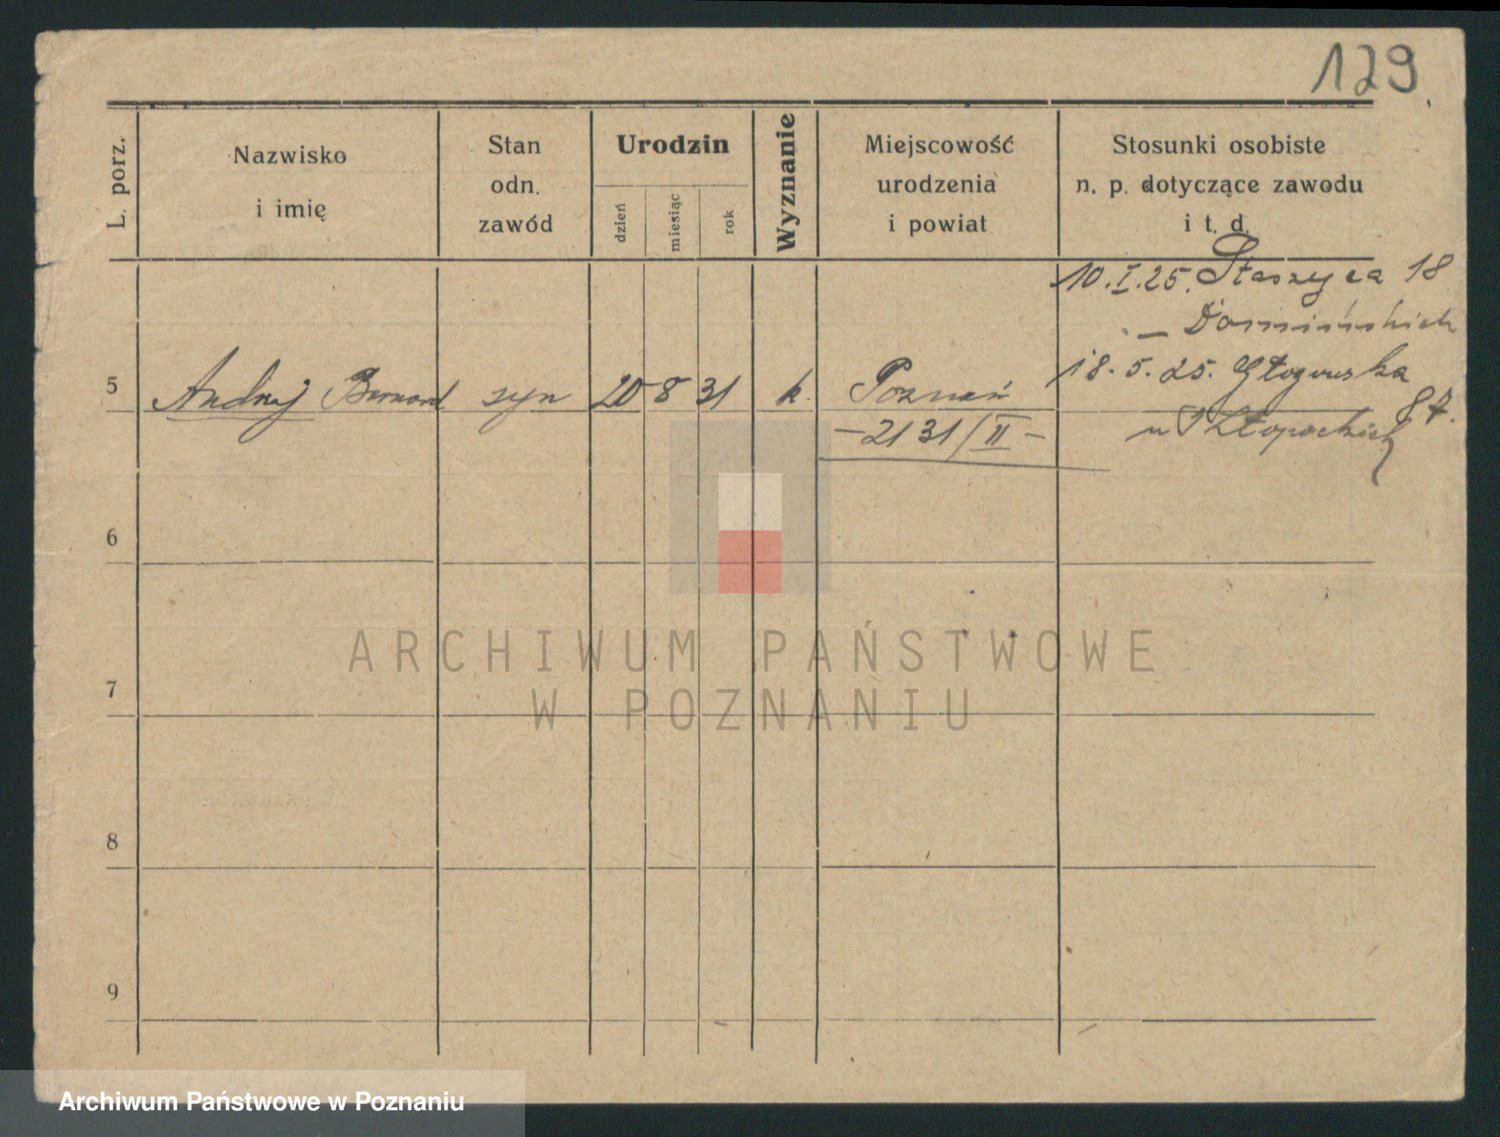 129
L. porz.
Nazwisko
i imię
Stan
odn.
zawód
Urodzin
dzień
miesiąc
rok
Wyznanie
Miejscowość
urodzenia
i powiat
Stosunki osobiste
n. p. dotyczące zawodu
i t. d.
10.I.25. Staszyca 18
18.5.25. Głogowska
87.
5
Andrzej Bernard
syn
20 8 31
k.
Poznań
–2131/II–
6
7
8
9
ARCHIWUM PAŃSTWOWE
W POZNANIU
Archiwum Państwowe w Poznaniu